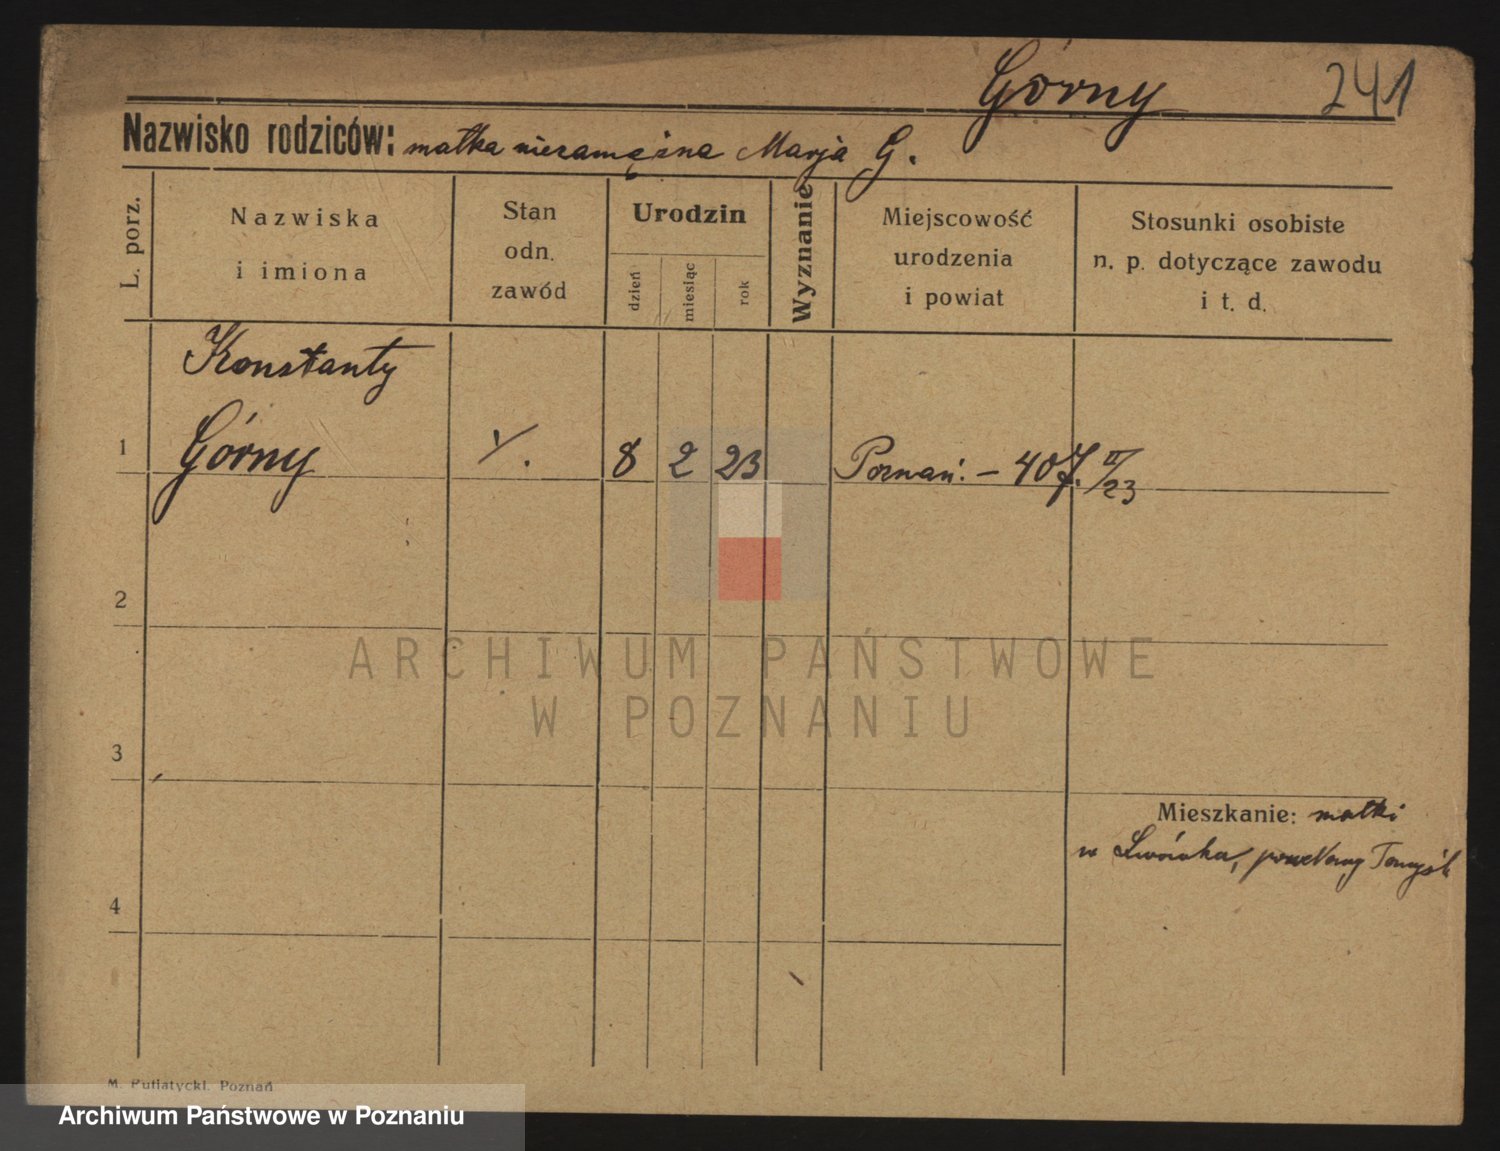 Górny 241
Nazwisko rodziców: matka niezamężna Marja G.
L. porz.
Nazwiska
i imiona
Stan
odn.
zawód
Urodzin
dzień
miesiąc
rok
Wyznanie
Miejscowość
urodzenia
i powiat
Stosunki osobiste
n. p. dotyczące zawodu
i t. d.
Konstanty
1 Górny 8 2 23 Poznań. - 407. II/23
2
ARCHIWUM PAŃSTWOWE
W POZNANIU
3
Mieszkanie: matki
w Lwówku, pow. Nowy Tomyśl
4
M. Putiatycki. Poznań
Archiwum Państwowe w Poznaniu